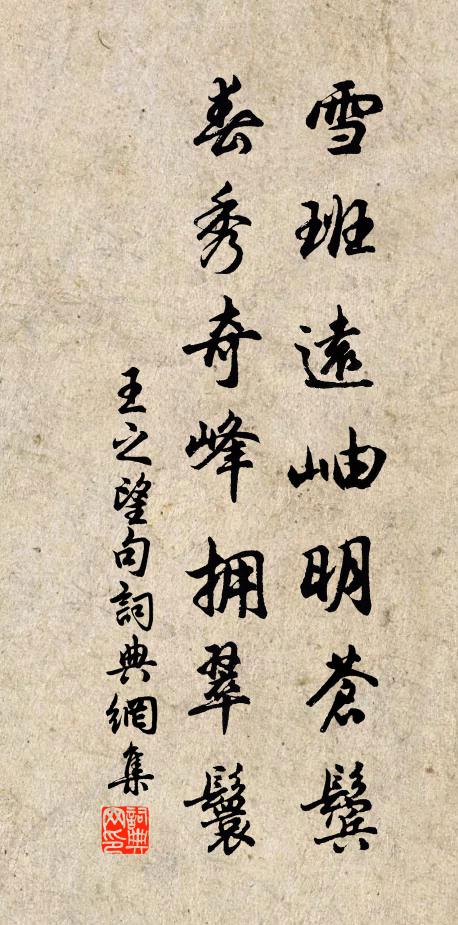 雪班遠岫明蒼鬓
春秀奇峰拥翠鬟
王之望句詞典網集
詞典
网印